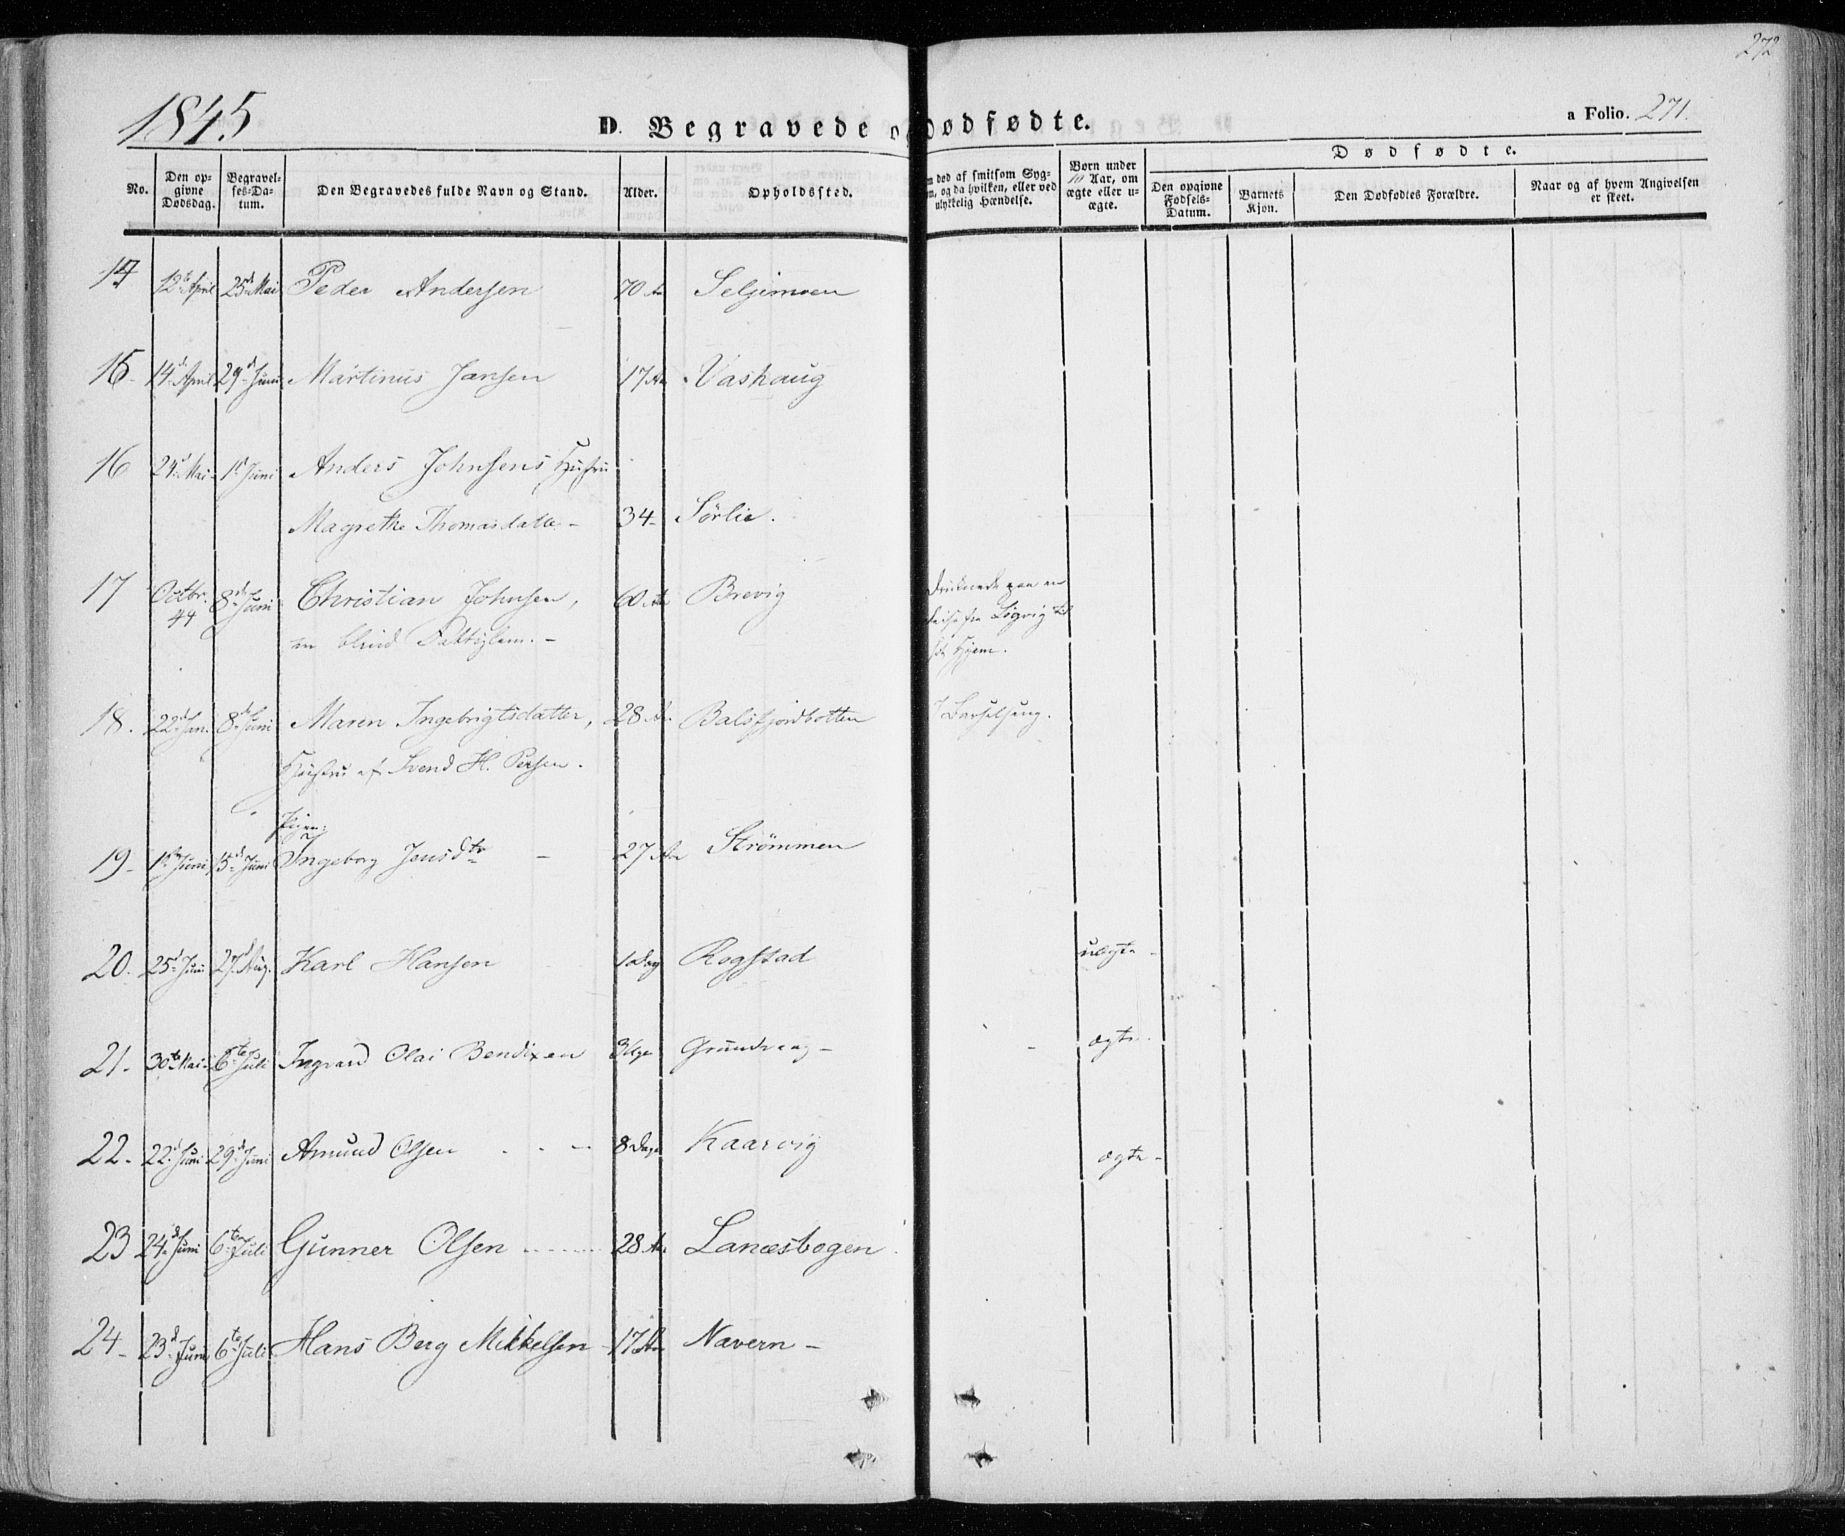 272
1845
D. Begravede o
dødfødte.
a Folio. 271.
No.
Den op-
givne
Dødsdag.
Begravel-
ses-Da-
tum.
Den Begravedes fulde Navn og Stand.
Alder.
Opholdssted.
død af smitsom Syg-
og da hvilken, eller ved
ulykkelig Hændelse.
Børn under
10 Aar, om
ægte eller u-
ægte.
Dødfødte.
Den opgivne
Fødsels-
Datum.
Barnets
Kjøn.
Den Dødfødtes Forældre.
Naar og af hvem Angivelsen
er skeet.
14 12te April 25de Mai Peder Andersen 70 Aar Seljemoen
15- 14de April 29de Juni Martinus Jansen 17 Aar Vashaug
16 24de Mai 1ste Juni Anders Johnsens Hustru
Magrethe Thomasdatter - 34- Sörlie.
17 Octbr. 44 8de Juni Christian Johnsen, 60 Aar Brevig druknede paa en
en blind Fattiglem. - Reise fra Ligvig til
sit Hjem.
18. 22de Jan. 8de Juni Maren Ingebrigtsdatter, 28 Aar Balsfjordbotten I Barselseng.
Hustru af Svend H. Persen.
Pigen
19- 1ste Juni 15de Juni Ingeborg Jensdtr - 27 Aar Strömmen
20. 25de Juni 27de Aug. Karl Hansen 1 Dag Rogstad uægte -
21- 30te Mai 6te Juli Ingvard Olai Bendixen 3 Uger Grundvaag - ægte.
22- 22de Juni 29de Juni Amund Olsen - 8 Dage Kaarvig ægte -
23 24de Juni 6te Juli Gunner Olsen 28 Aar Lanesbogen
24- 23de Juni 6te Juli Hans Berg Mikkelsen 17 Aar Navern -